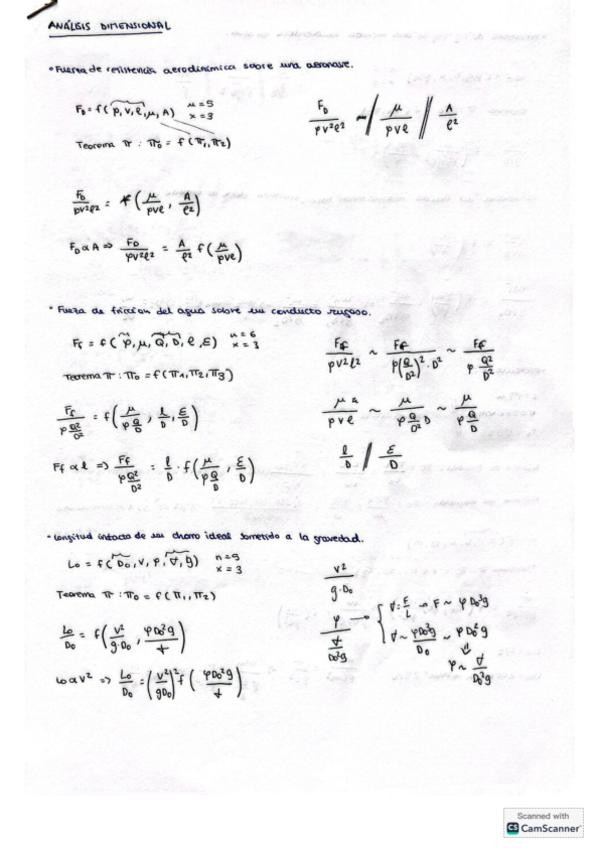 ANÁLISIS DIMENSIONAL
• Fuerza de resistencia aerodinámica sobre una aeronave.
F_D = f(ρ, v, l, μ, A) n = 5 x = 3
Teorema π : π₀ = f(π₁, π₂)
F_D/ρv²l² ~ / μ/ρvl // A/l²
F_D/ρv²l² = f(μ/ρvl, A/l²)
F_D ∝ A => F_D/ρv²l² = A/l² f(μ/ρvl)
• Fuerza de friccion del agua sobre un conducto rugoso.
F_f = f(ρ, μ, Q, D, l, ε) n = 6 x = 3
Teorema π : π₀ = f(π₁, π₂, π₃)
F_f/ρv²l² ~ F_f/ρ(Q/D²)²·D² ~ F_f/ρ Q²/D²
F_f/ρ Q²/D² = f(μ/ρ Q/D, l/D, ε/D)
μ/ρvl ~ μ/ρ Q/D² D ~ μ/ρ Q/D
F_f ∝ l => F_f/ρ Q²/D² = l/D · f(μ/ρ Q/D, ε/D)
l/D / ε/D
• Longitud intacta de un chorro ideal sometido a la gravedad.
L₀ = f(D₀, v, ρ, σ, g) n = 5 x = 3
Teorema π : π₀ = f(π₁, π₂)
v²/g·D₀
L₀/D₀ = f(v²/g·D₀, ρD₀²g/σ)
ρ/(σ/D₀²g) → { σ: F/L → F ~ ρD₀³g
σ ~ ρD₀³g/D₀ ~ ρD₀²g
⇓
ρ ~ σ/D₀²g
L₀ ∝ v² => L₀/D₀ = (v²/gD₀)² f(ρD₀²g/σ)
Scanned with
CS CamScanner